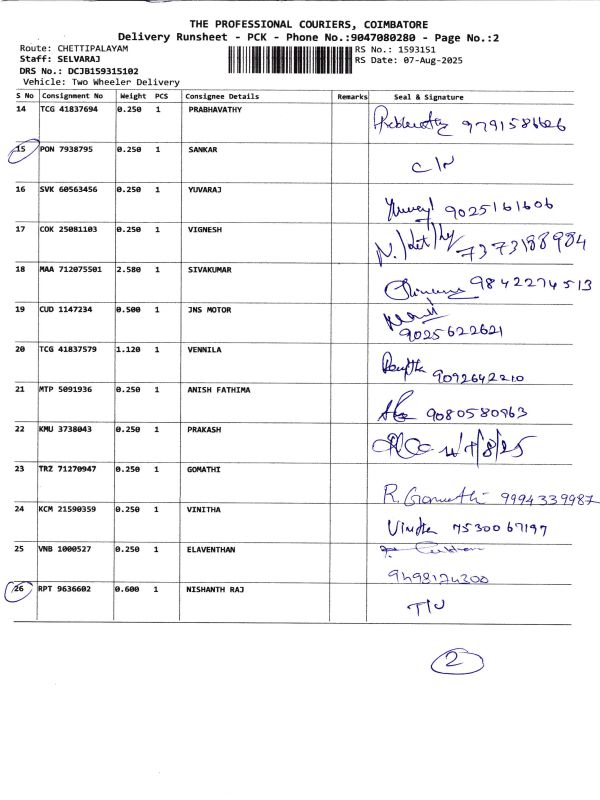 THE PROFESSIONAL COURIERS, COIMBATORE
Delivery Runsheet - PCK - Phone No.:9047080280 - Page No.:2
Route: CHETTIPALAYAM RS No.: 1593151
Staff: SELVARAJ RS Date: 07-Aug-2025
DRS No.: DCJB159315102
Vehicle: Two Wheeler Delivery
S No Consignment No Weight PCS Consignee Details Remarks Seal & Signature
14 TCG 41837694 0.250 1 PRABHAVATHY
9791586626
15 PON 7938795 0.250 1 SANKAR
C/N
16 SVK 60563456 0.250 1 YUVARAJ
9025161606
17 COK 25081103 0.250 1 VIGNESH
7373188984
18 MAA 712075501 2.580 1 SIVAKUMAR
9842274513
19 CUD 1147234 0.500 1 JNS MOTOR
9025622621
20 TCG 41837579 1.120 1 VENNILA
9092642210
21 MTP 5091936 0.250 1 ANISH FATHIMA
9080580963
22 KMU 3738043 0.250 1 PRAKASH
23 TRZ 71270947 0.250 1 GOMATHI
R. Gomathi 9994339987
24 KCM 21590359 0.250 1 VINITHA
Vinitha 7530067197
25 VNB 1000527 0.250 1 ELAVENTHAN
9498124300
26 RPT 9636602 0.600 1 NISHANTH RAJ
2